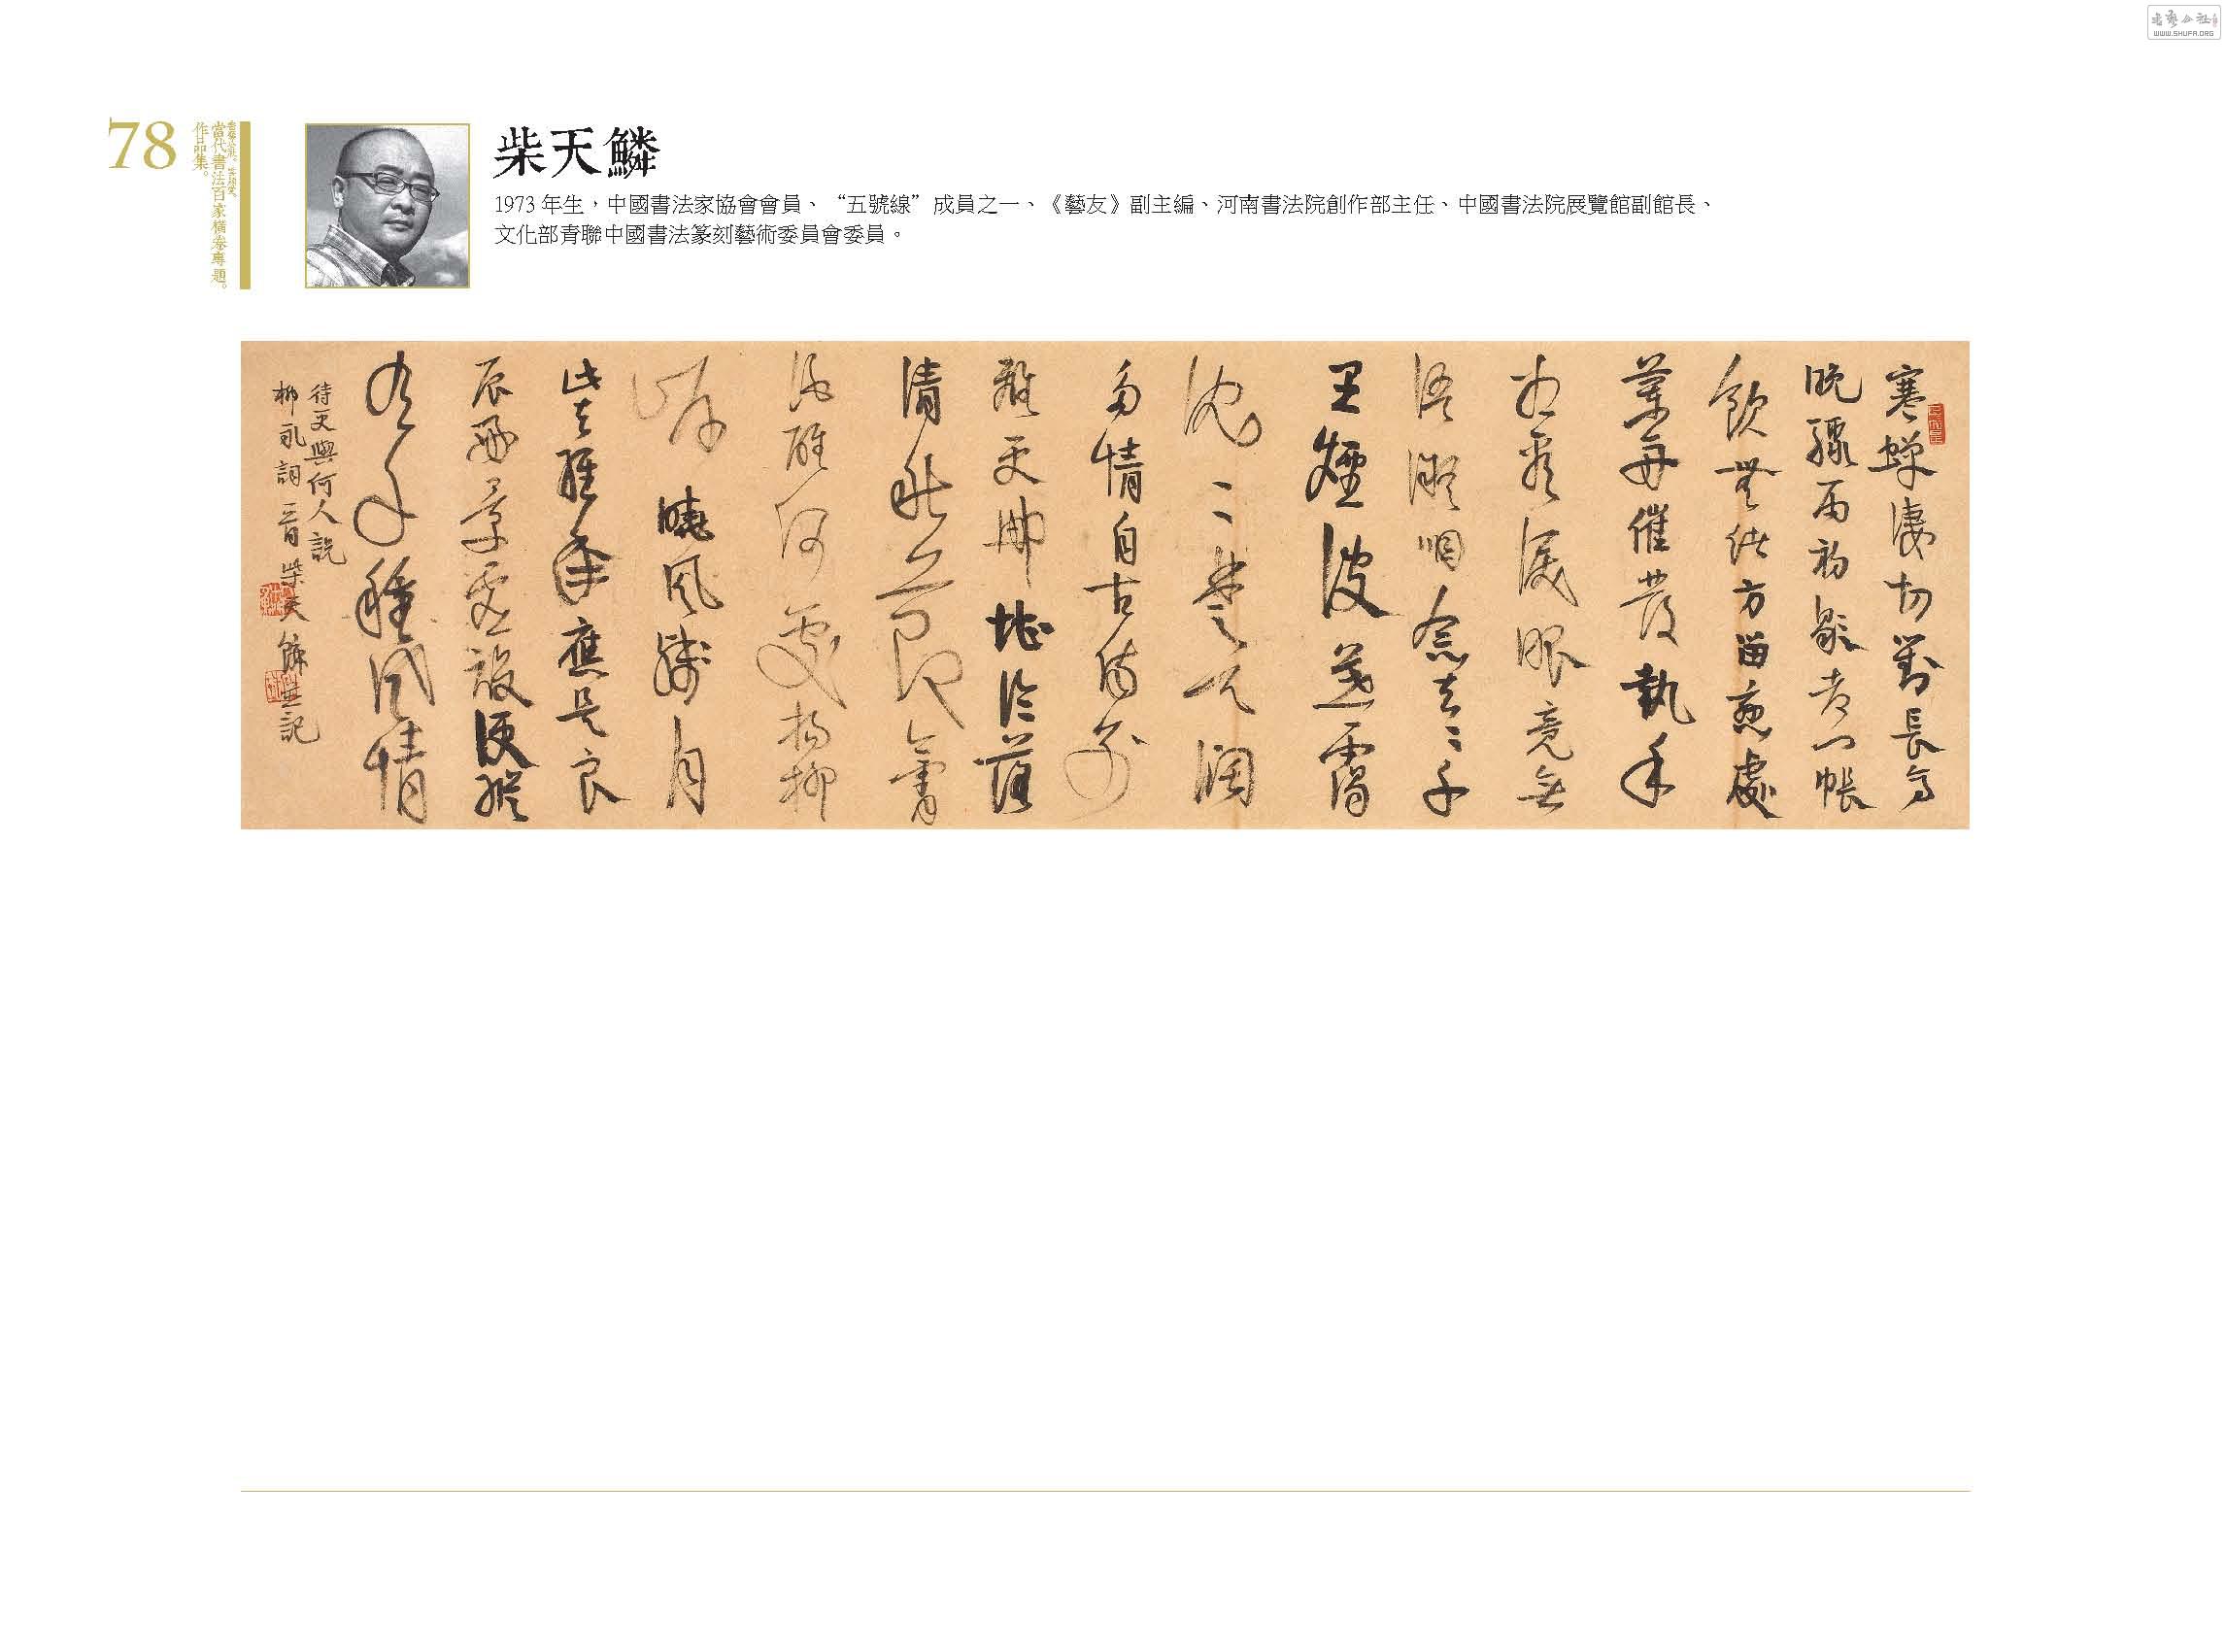 書藝公社
WWW.SHUFA.ORG
78
當代書法百家橫卷專題。
作品集。
柴天鱗
1973年生，中國書法家協會會員、“五號線”成員之一、《藝友》副主編、河南書法院創作部主任、中國書法院展覽館副館長、
文化部青聯中國書法篆刻藝術委員會委員。
寒蟬淒切對長亭
晚驟雨初歇都門帳
飲無緒方留戀處
蘭舟催發執手
相看淚眼竟無
語凝咽念去〻千
里煙波暮靄
沈〻楚天闊
多情自古傷別
離更那堪冷落
清秋節今宵
酒醒何處楊柳
岸曉風殘月
此去經年應是良
辰好景虛設便縱
有千種風情
待更與何人說
柳永詞一首柴天鱗並記